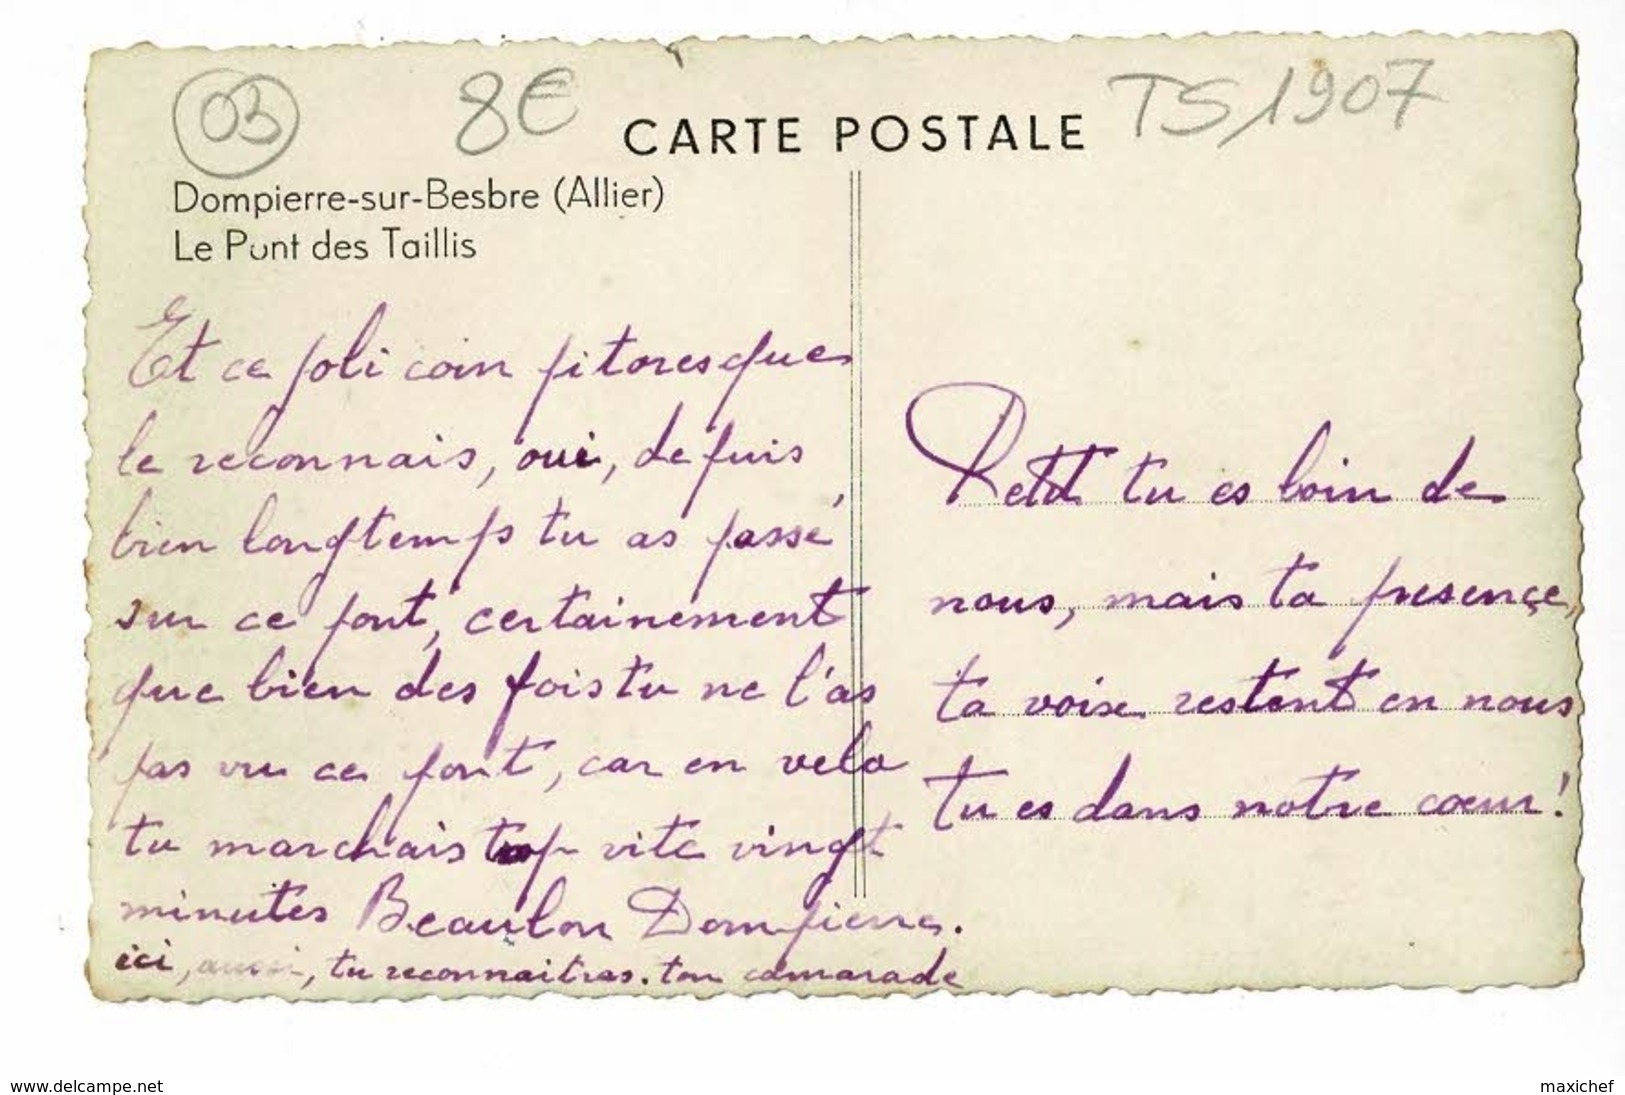 03
8€
TS1907
CARTE POSTALE
Dompierre-sur-Besbre (Allier)
Le Pont des Taillis
Et ce joli coin pitoresque
le reconnais, oui, depuis
bien longtemps tu as passé
sur ce pont, certainement
que bien des fois tu ne l'as
pas vu ce pont, car en velo
tu marchais trop vite vingt
minutes Beaulon Dompierre.
ici, aussi, tu reconnaitras. ton camarade
Petit tu es loin de
nous, mais ta presence,
ta voix restent en nous
tu es dans notre cœur!
www.delcampe.net
maxichef